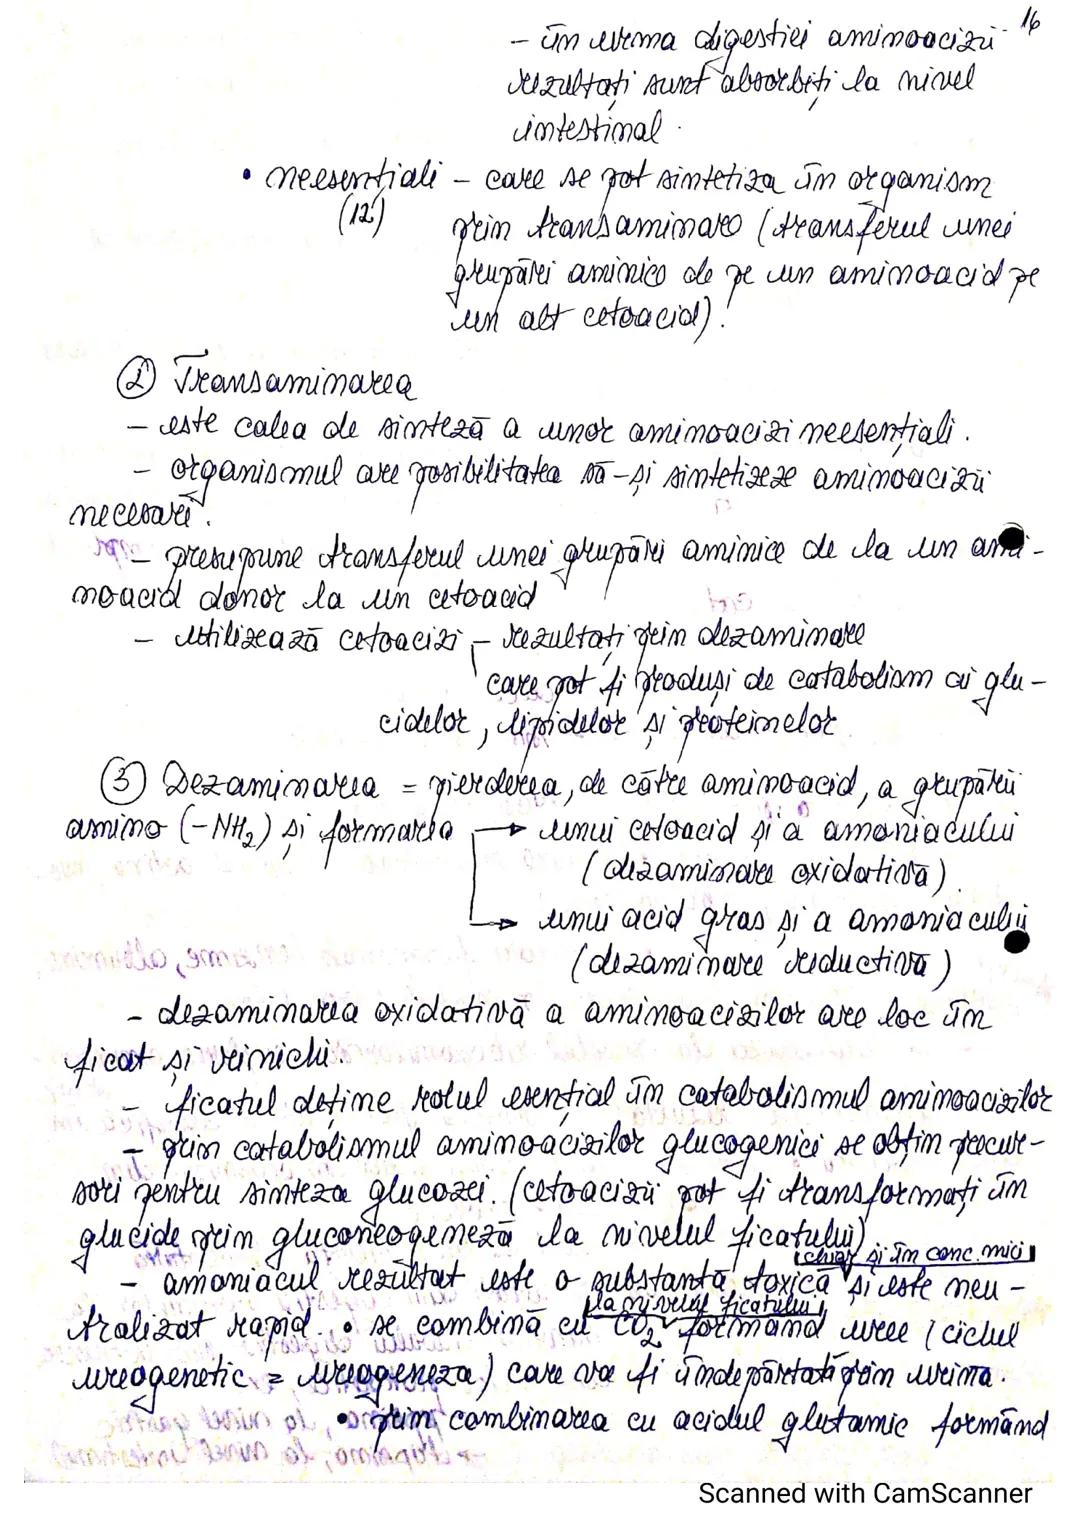 16
- în urma digestiei aminoacizii
rezultați sunt absorbiți la nivel
intestinal.
• neesențiali - care se pot sintetiza în organism
(12)
prin transaminare (transferul unei
grupări aminice de pe un aminoacid pe
un alt cetoacid).
② Transaminarea
- este calea de sinteză a unor aminoacizi neesențiali.
- organismul are posibilitatea să-și sintetizeze aminoacizii
necesari.
- presupune transferul unei grupări aminice de la un ami-
noacid donor la un cetoacid
- utilizează cetoacizi - rezultați prin dezaminare
care pot fi produși de catabolism ai glu-
cidelor, lipidelor și proteinelor
③ Dezaminarea = pierderea, de către aminoacid, a grupării
amino (-NH₂) și formarea → unui cetoacid și a amoniacului
(dezaminare oxidativă).
→ unui acid gras și a amoniacului
(dezaminare reductivă)
- dezaminarea oxidativă a aminoacizilor are loc în
ficat și rinichi.
- ficatul deține rolul esențial în catabolismul aminoacizilor
- prin catabolismul aminoacizilor glucogenici se obțin precur-
sori pentru sinteza glucozei. (cetoacizii pot fi transformați în
glucide prin gluconeogeneză la nivelul ficatului)
chiar și în conc. mici
- amoniacul rezultat este o substanță toxică și este neu-
la nivelul ficatului
tralizat rapid. • se combină cu CO₂ formând uree (ciclul
ureogenetic = ureogeneza) care va fi îndepărtată prin urina.
• prin combinarea cu acidul glutamic formând
Scanned with CamScanner